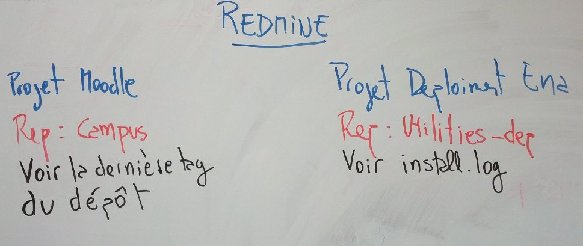 REDMINE
Projet Moodle
Rep : Campus
Voir la dernière tag
du dépôt
Projet Deploiment Ena
Rep : Utilities-dep
Voir install.log